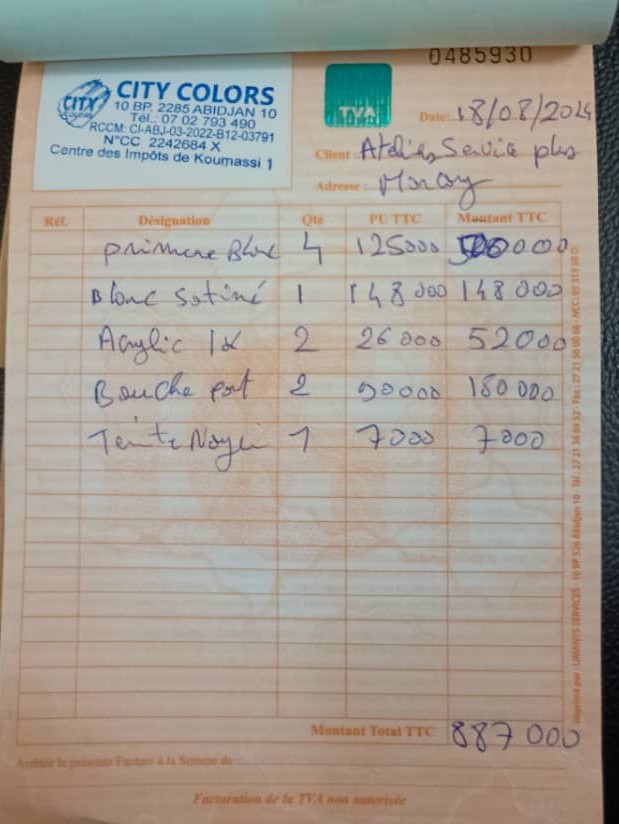 0485930
CITY COLORS
10 BP. 2285 ABIDJAN 10
Tél.: 07 02 793 490
RCCM: CI-ABJ-03-2022-B12-03791
N°CC 2242684 X
Centre des Impôts de Koumassi 1
CITY
TVA
Date: 18/08/2024
Client: Atelier Service plus
Adresse:
Réf. Désignation Qté PU TTC Montant TTC
primere Blanc 4 125000 500000
Blanc Satiné 1 148 000 148 000
Acrylic 2 26 000 52000
Bouche port 2 90000 180 000
Teinte Noyer 1 7000 7000
Montant Total TTC 887 000
Arrêter la présente Facture à la Somme de :
Facturation de la TVA non autorisée